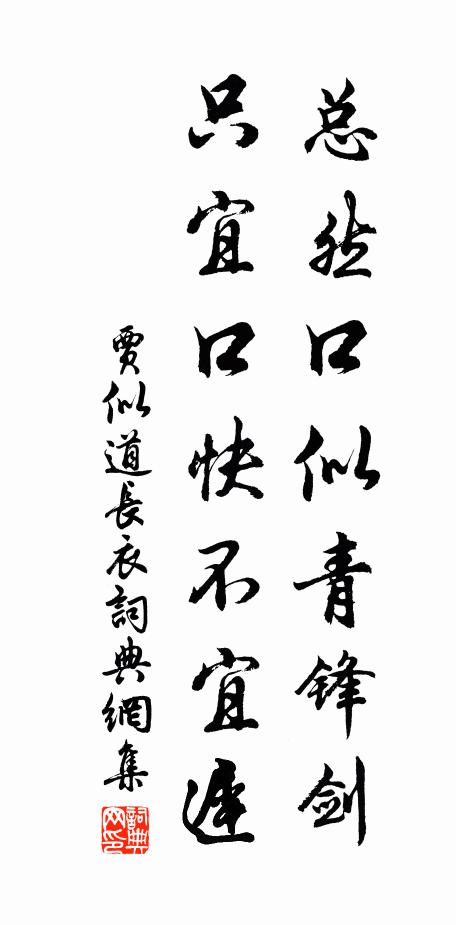 总然口似青锋剑
只宜口快不宜遲
賈似道長衣詞典網集
詞典
网印